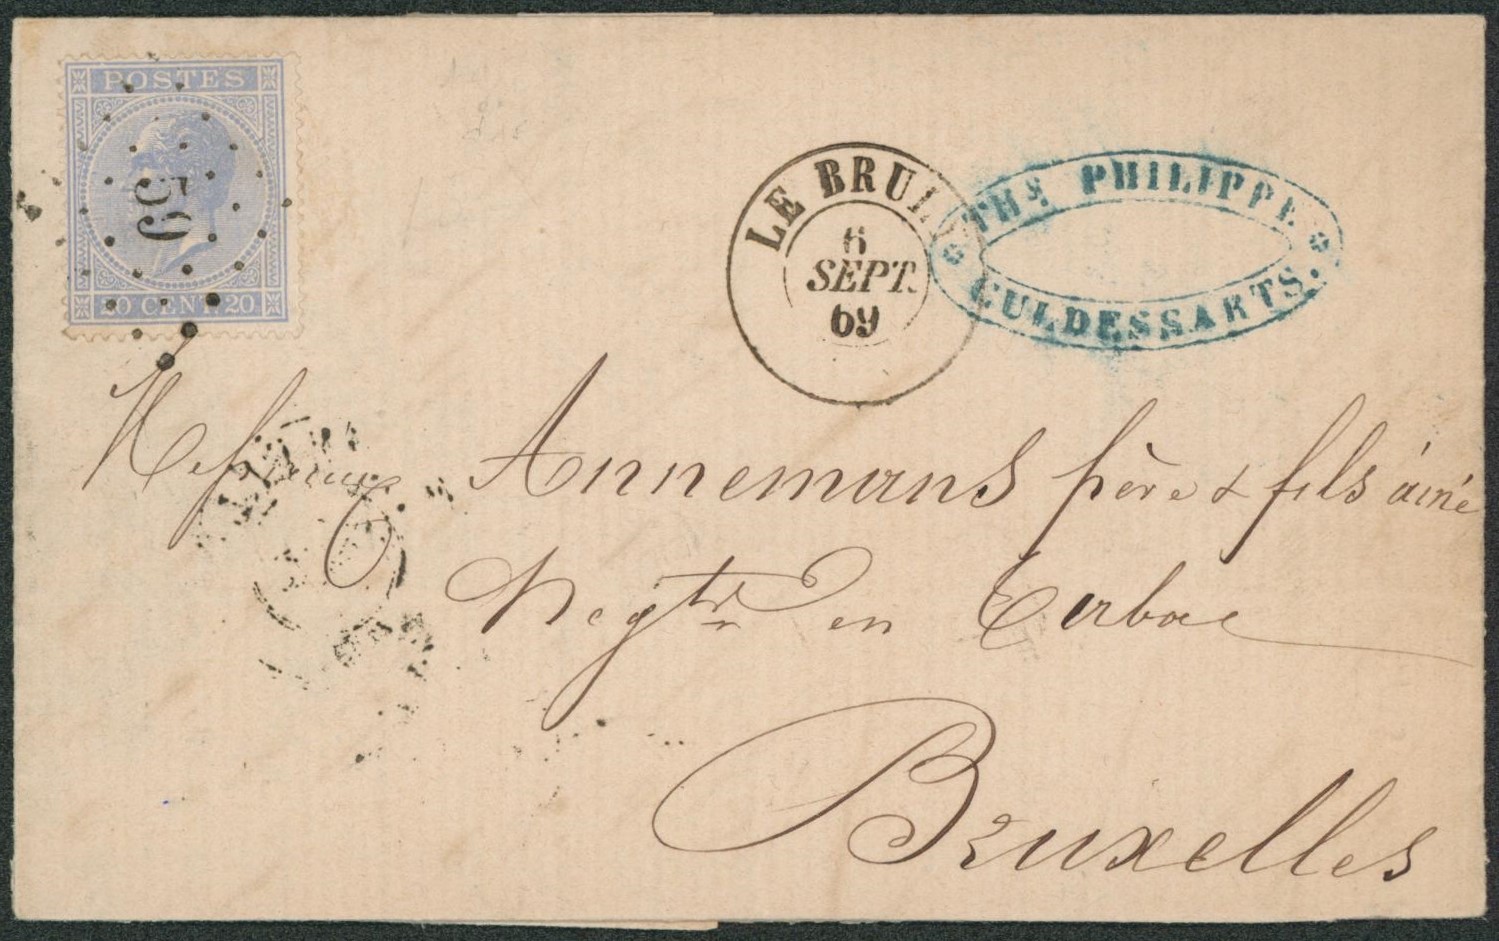 POSTES
59
20 CENT. 20
LE BRULY
6
SEPT.
69
THE PHILIPPE
CULDESSARTS.
Messieurs Annemans père & fils ainé
Negts en Tabac
Bruxelles